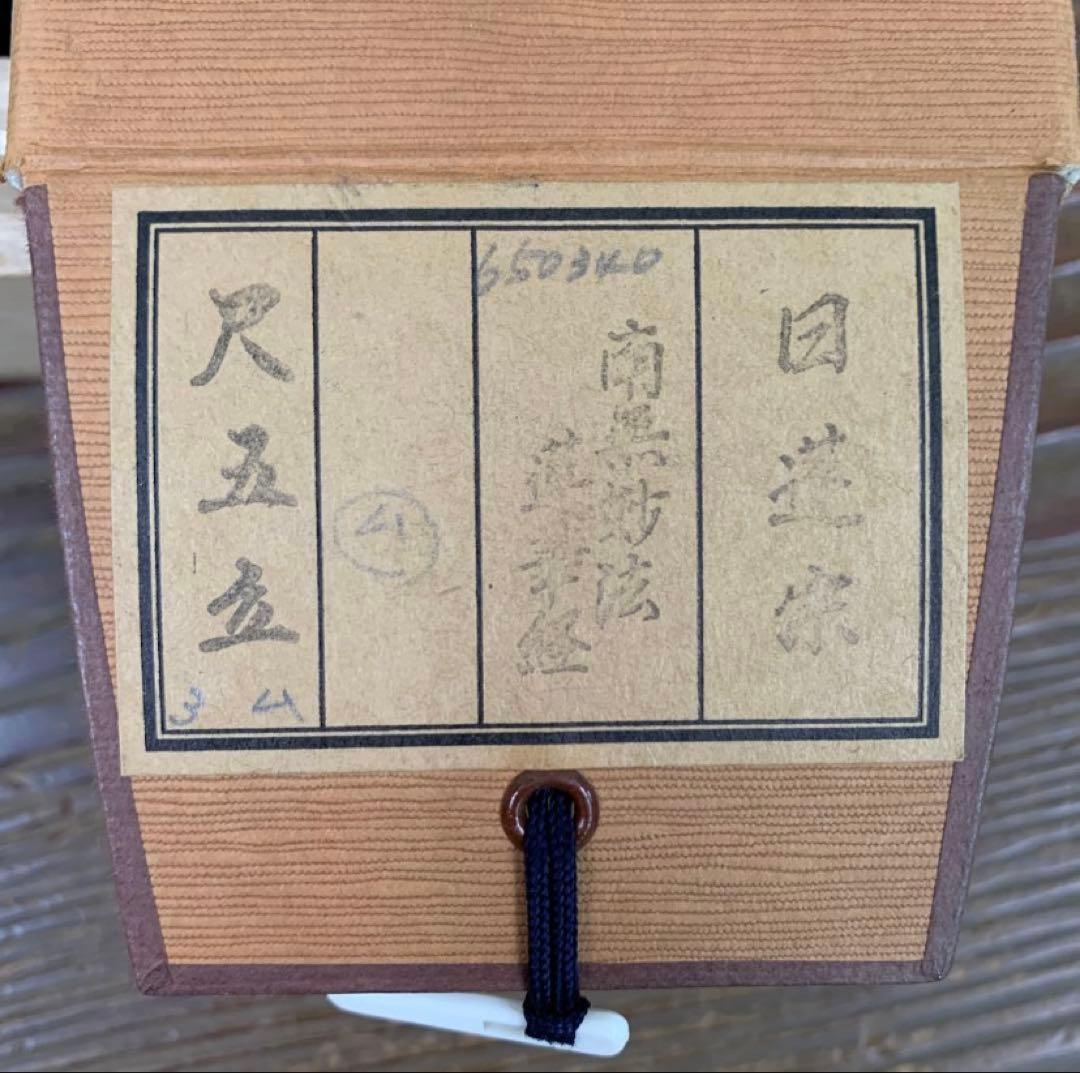 日蓮宗
650340
南無妙法
蓮華経
4
尺五立
3 4